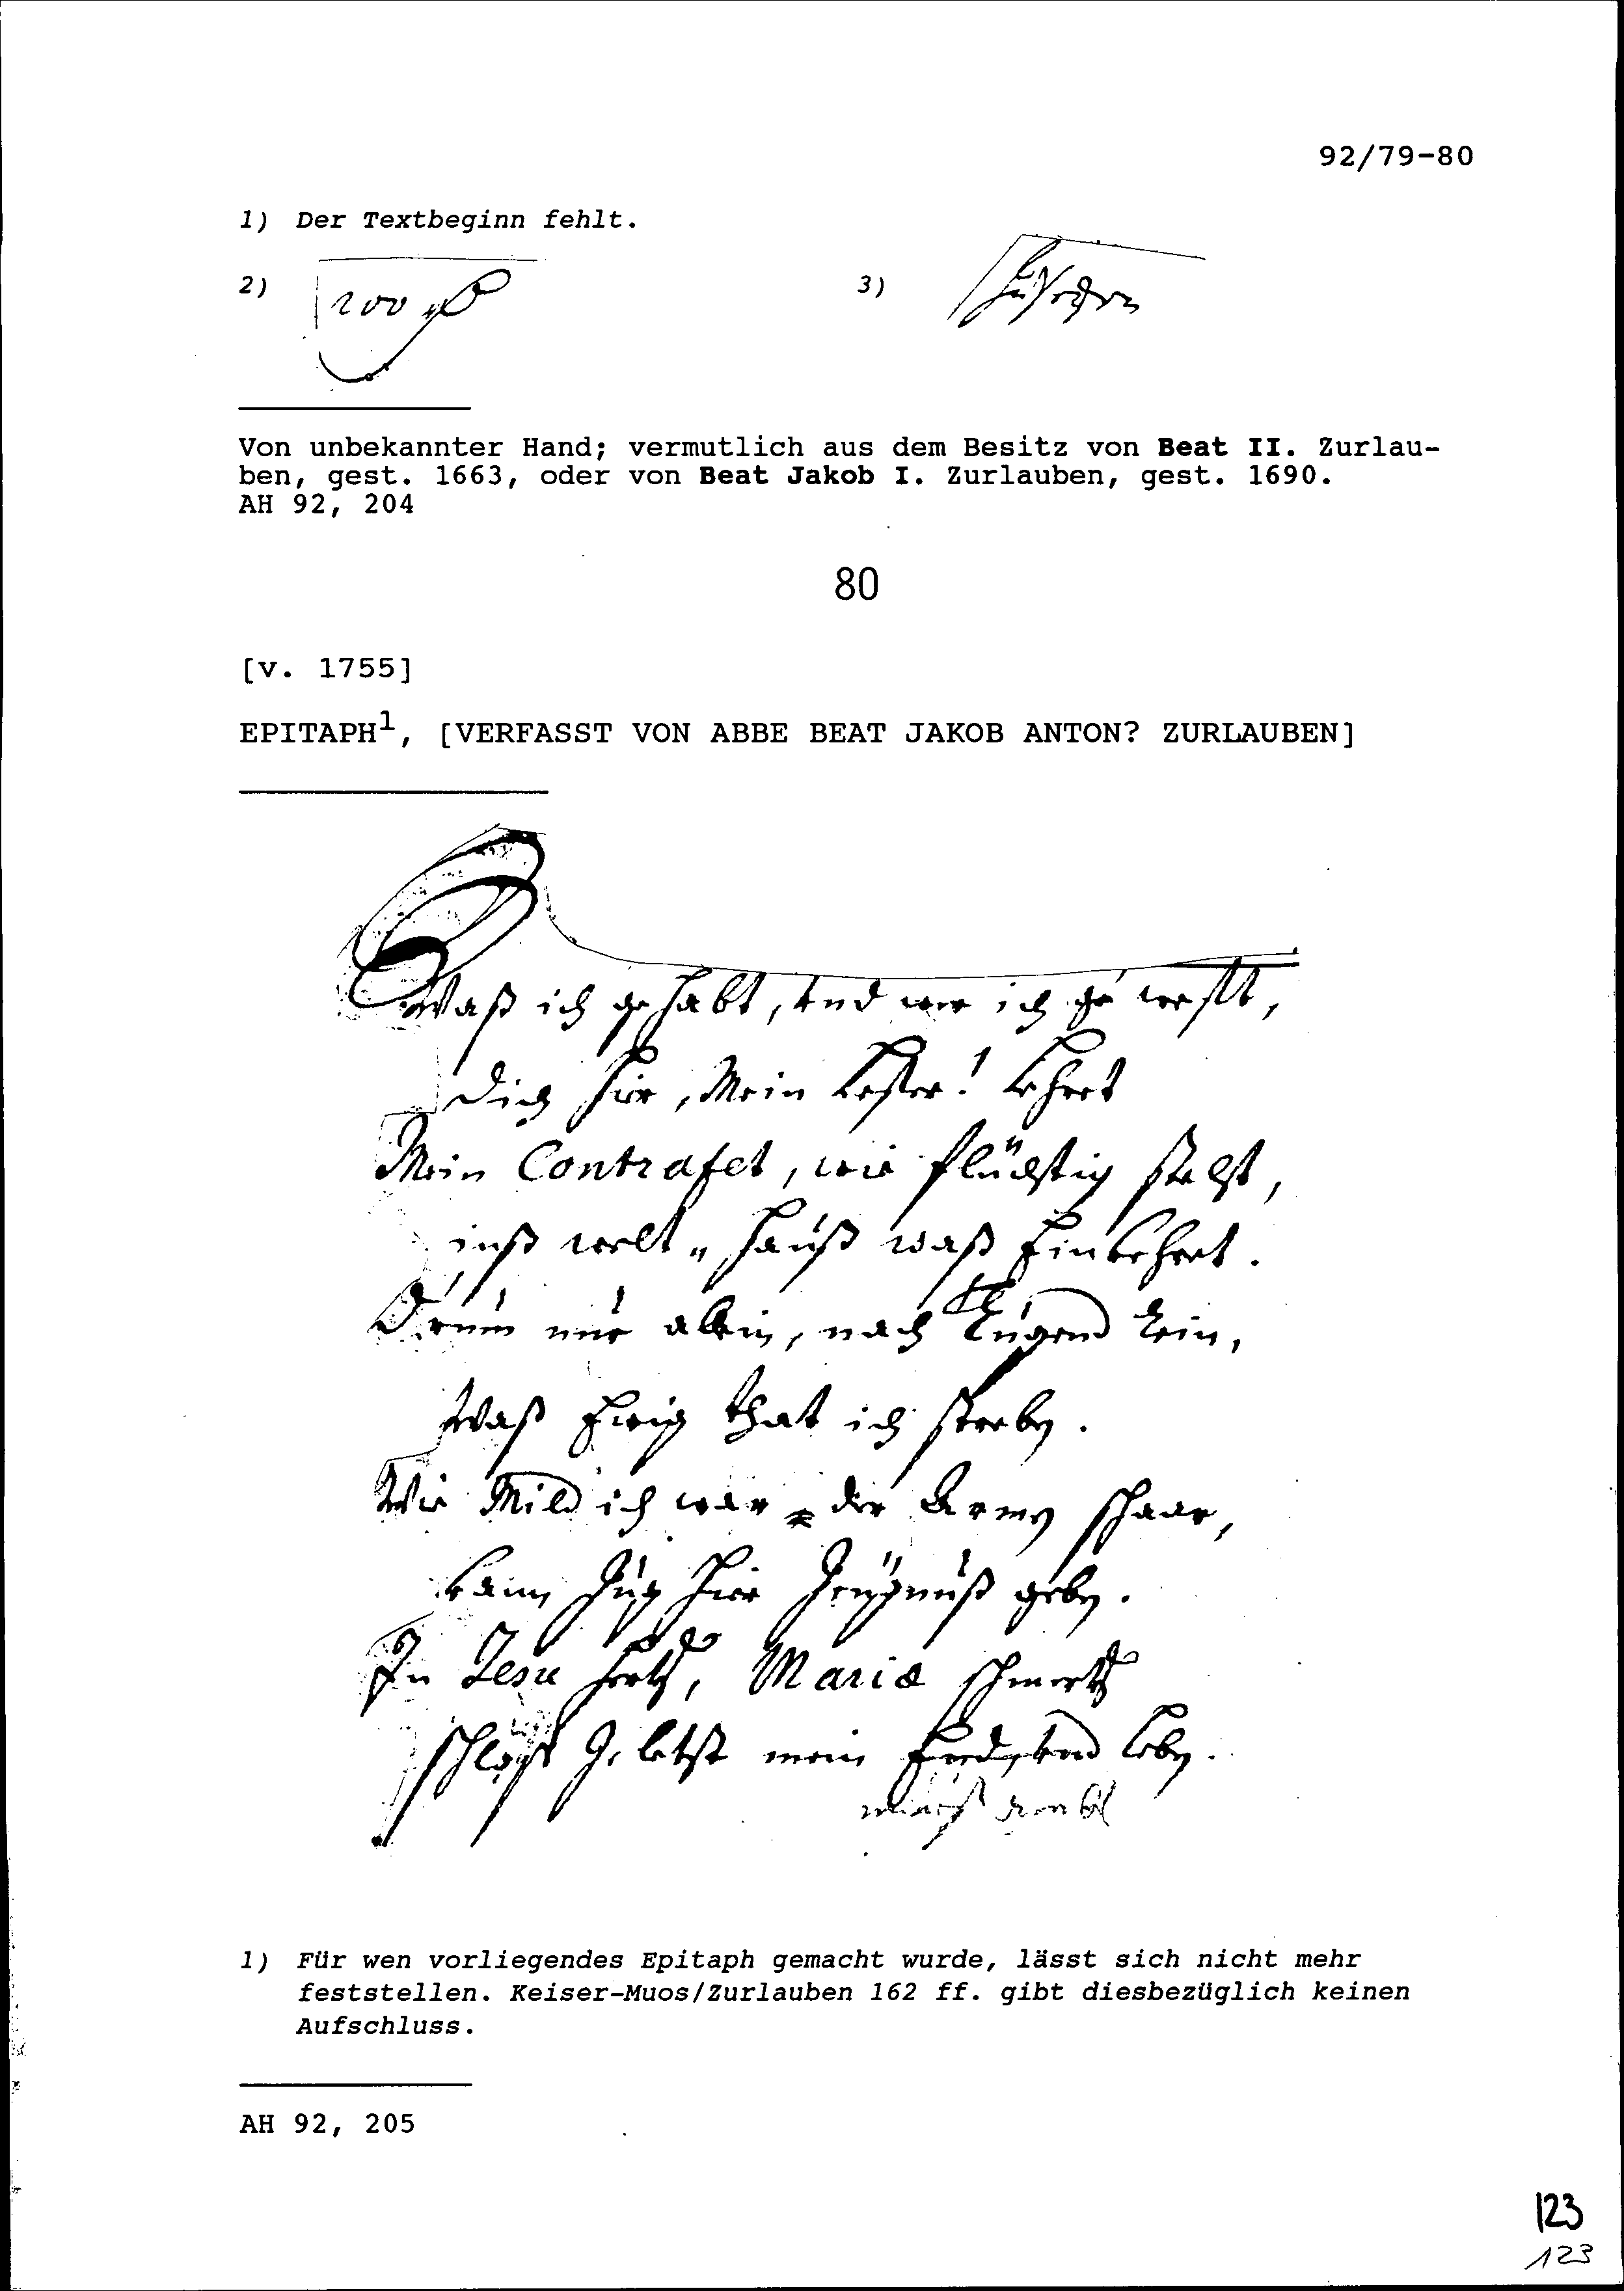 92/79-80
1) Der Textbeginn fehlt.
2) 200
3)
Von unbekannter Hand; vermutlich aus dem Besitz von Beat II. Zurlau-
ben, gest. 1663, oder von Beat Jakob I. Zurlauben, gest. 1690.
AH 92, 204
80
[v. 1755]
EPITAPH¹, [VERFASST VON ABBE BEAT JAKOB ANTON? ZURLAUBEN]
Waß ich gehabt, vnd wer ich gewest,
dich hier, Mein Leser! Lehret
Mein Contrafet, wie flüchtig
inß welt„ hauß waß Einkehret.
Drum nur allein, nach Tugend
Waß Ewig that ich streben.
Wie Mild ich war der Armen schaar,
kann Zug hier Zeügnuß geben.
In Jesu hertz, Mariæ schmertz
mein End, vnd Leben.
1) Für wen vorliegendes Epitaph gemacht wurde, lässt sich nicht mehr
feststellen. Keiser-Muos/Zurlauben 162 ff. gibt diesbezüglich keinen
Aufschluss.
AH 92, 205
123
123